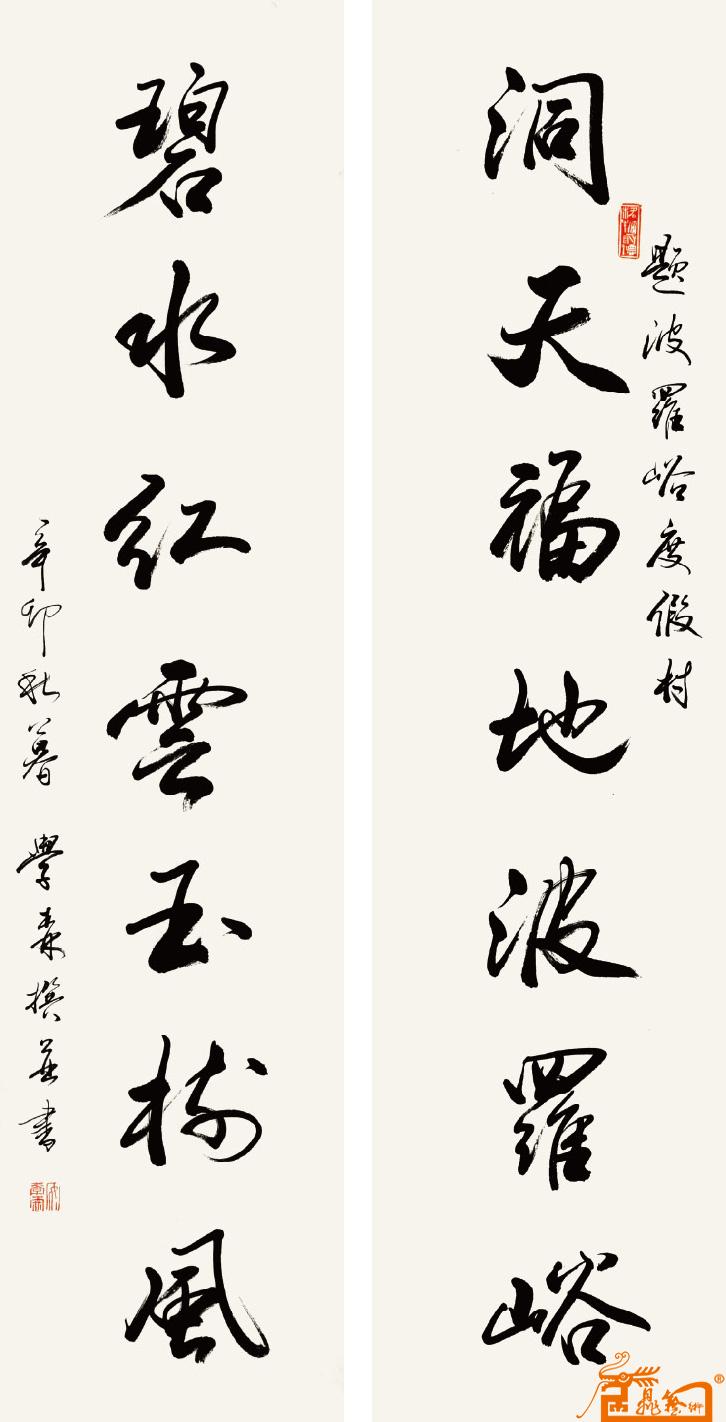 題波羅峪度假村
洞天福地波羅峪
碧水紅雲玉樹風
辛卯秋暮 學森撰並書